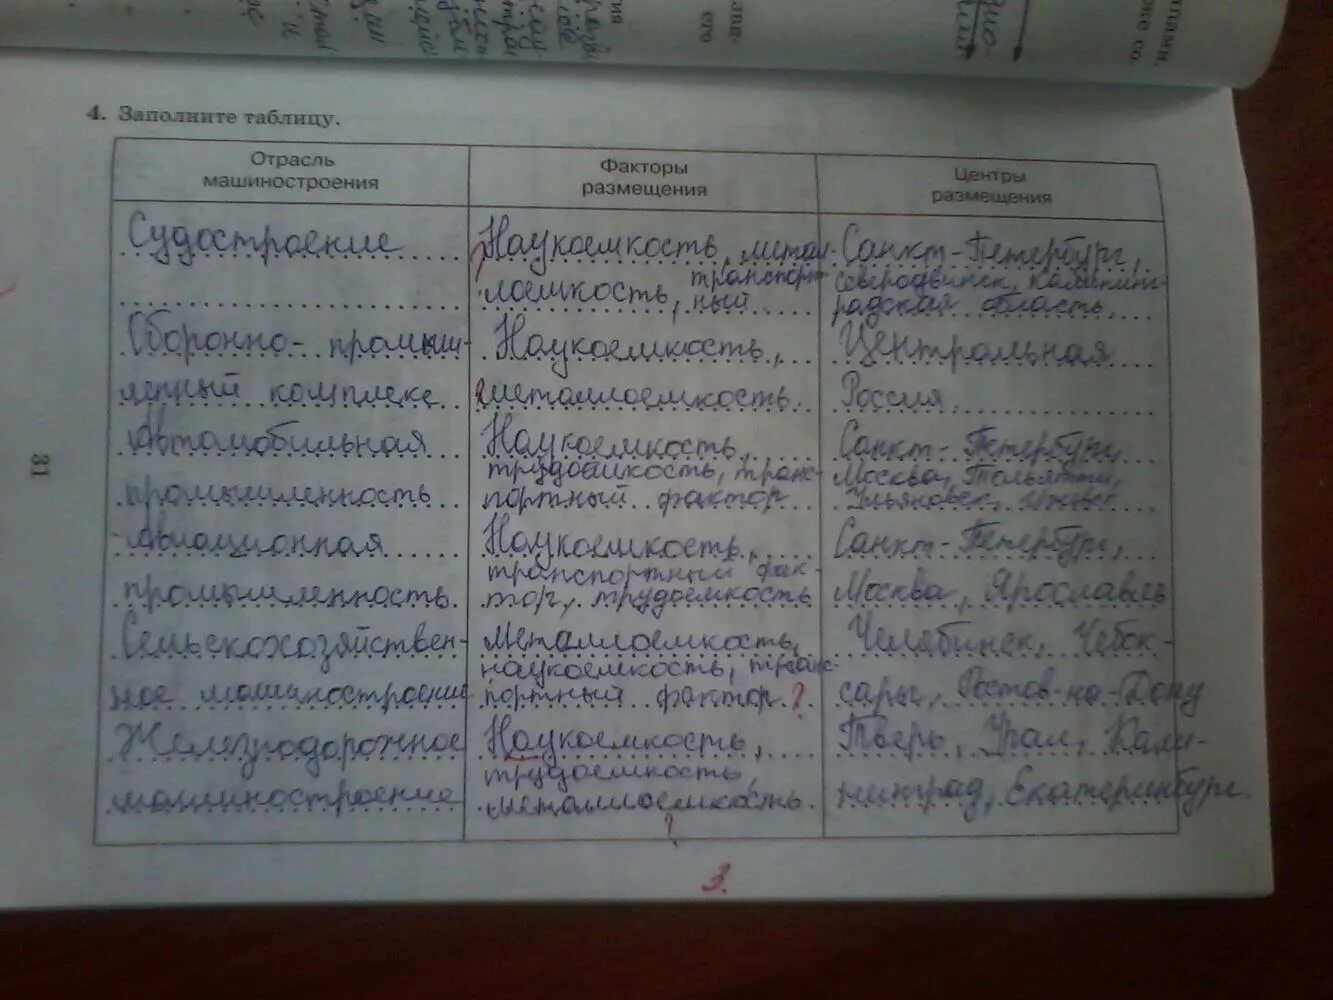 4. Заполните таблицу.
Отрасль
машиностроения
Факторы
размещения
Центры
размещения
Судостроение
Наукоемкость, метал-
лоемкость, транспорт
ный
Санкт-Петербург,
северодвинск, калининг-
радская область.
Оборонно-промыш-
ленный комплекс
Наукоемкость,
металлоемкость.
Центральная
Россия.
Автомобильная
промышленность
Наукоемкость,
трудоемкость, транс-
портный фактор
Санкт-Петербург,
Москва, Тольятти,
Ульяновск, Ижевск
Авиационная
промышленность.
Наукоемкость,
транспортный фак-
тор, трудоемкость
Санкт-Петербург,
Москва, Ярославль
Сельскохозяйствен-
ное машиностроение
металлоемкость,
наукоемкость, транс-
портный фактор ?
Челябинск, Чебок-
сары, Ростов-на-Дону
Железнодорожное
машиностроение
Наукоемкость,
трудоемкость,
металлоемкость.
Тверь, Урал, Кали-
нинград, Екатеринбург.
31
3.